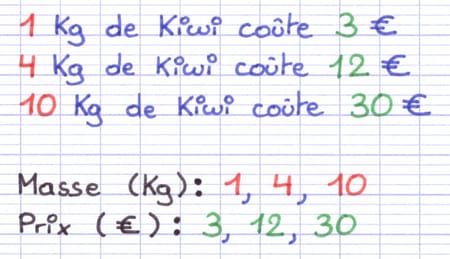 1 Kg de Kiwi coûte 3 €
4 Kg de Kiwi coûte 12 €
10 Kg de Kiwi coûte 30 €
Masse (Kg): 1, 4, 10
Prix (€): 3, 12, 30